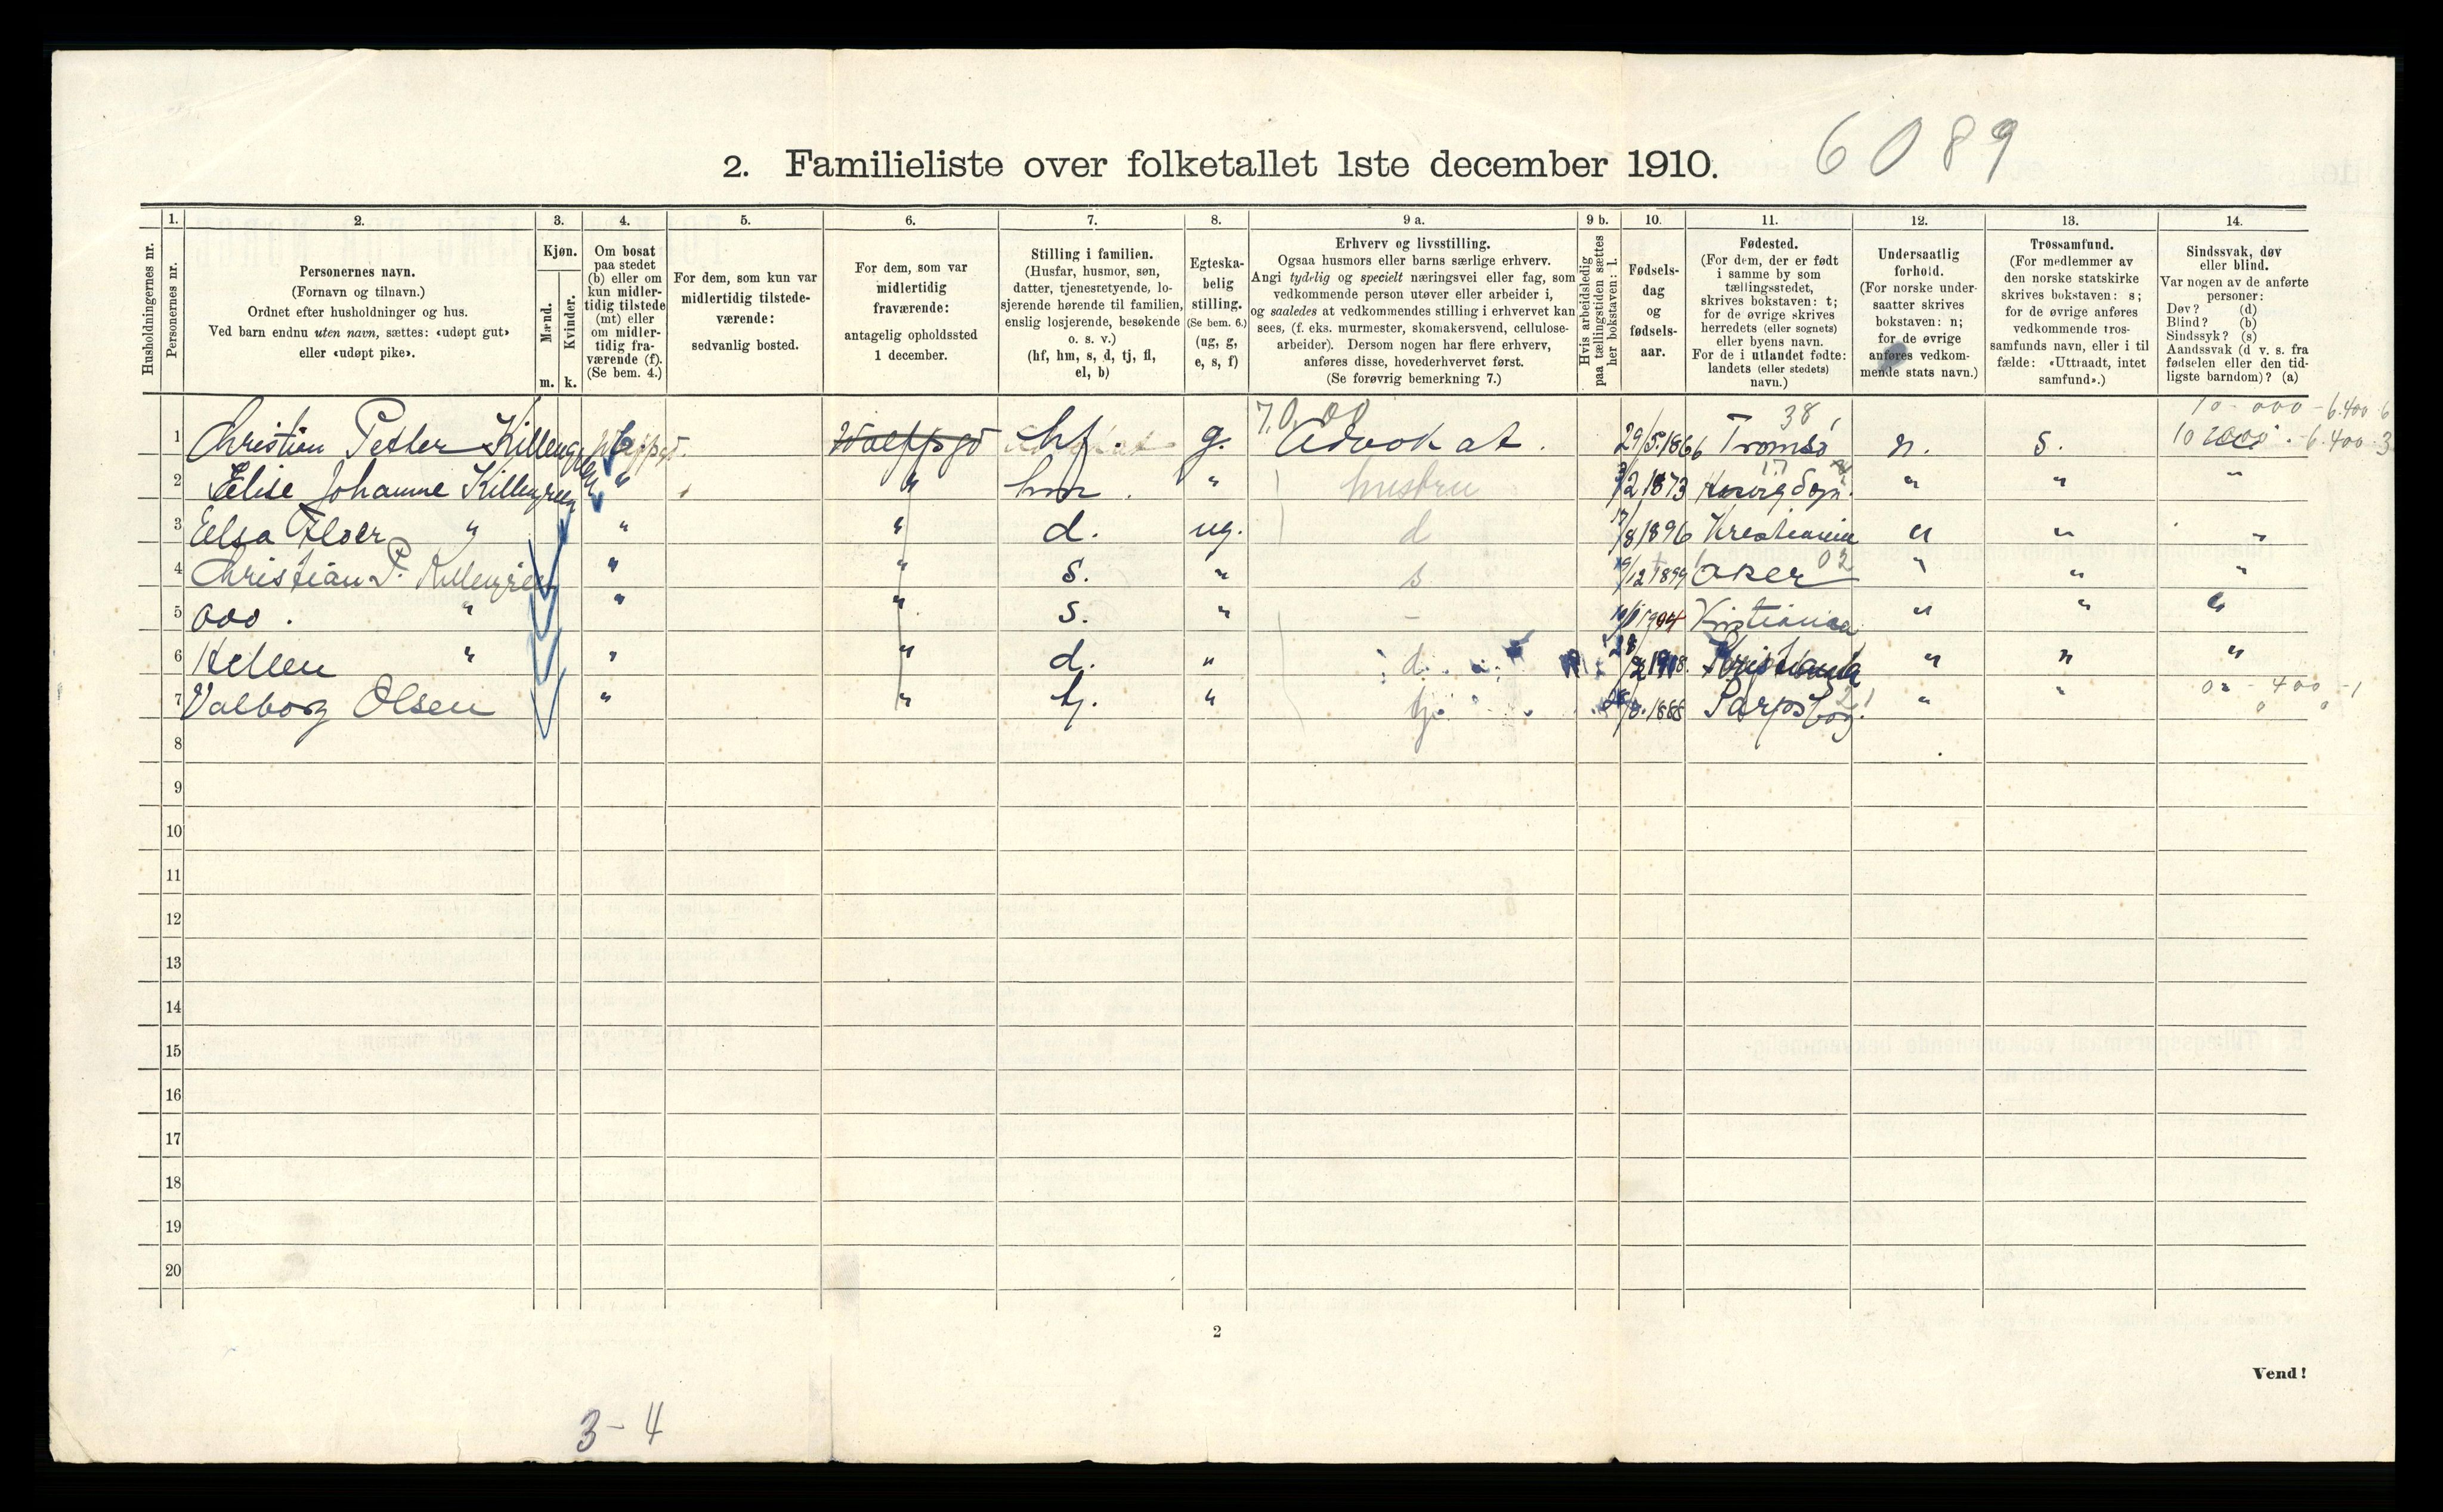 6089
2. Familieliste over folketallet 1ste december 1910.
Husholdningernes nr.
1. Personernes nr.
2. Personernes navn.
(Fornavn og tilnavn.)
Ordnet efter husholdninger og hus.
Ved barn endnu uten navn, sættes: «udøpt gut»
eller «udøpt pike».
3. Kjøn.
Mænd. m.
Kvinder. k.
4. Om bosat
paa stedet
(b) eller om
kun midler-
tidig tilstede
(mt) eller
om midler-
tidig fra-
værende (f).
(Se bem. 4.)
5. For dem, som kun var
midlertidig tilstede-
værende:
sedvanlig bosted.
6. For dem, som var
midlertidig
fraværende:
antagelig opholdssted
1 december.
7. Stilling i familien.
(Husfar, husmor, søn,
datter, tjenestetyende, lo-
sjerende hørende til familien,
enslig losjerende, besøkende
o. s. v.)
(hf, hm, s, d, tj, fl,
el, b)
8. Egteska-
belig
stilling.
(Se bem. 6.)
(ug, g,
e, s, f)
9 a. Erhverv og livsstilling.
Ogsaa husmors eller barns særlige erhverv.
Angi tydelig og specielt næringsvei eller fag, som
vedkommende person utøver eller arbeider i,
og saaledes at vedkommendes stilling i erhvervet kan
sees, (f. eks. murmester, skomakersvend, cellulose-
arbeider). Dersom nogen har flere erhverv,
anføres disse, hovederhvervet først.
(Se forøvrig bemerkning 7.)
9 b. Hvis arbeidsledig
paa tællingstiden sættes
her bokstaven: l.
10. Fødsels-
dag
og
fødsels-
aar.
11. Fødested.
(For dem, der er født
i samme by som
tællingsstedet,
skrives bokstaven: t;
for de øvrige skrives
herredets (eller sognets)
eller byens navn.
For de i utlandet fødte:
landets (eller stedets)
navn.)
12. Undersaatlig
forhold.
(For norske under-
saatter skrives
bokstaven: n;
for de øvrige
anføres vedkom-
mende stats navn.)
13. Trossamfund.
(For medlemmer av
den norske statskirke
skrives bokstaven: s;
for de øvrige anføres
vedkommende tros-
samfunds navn, eller i til
fælde: «Uttraadt, intet
samfund».)
14. Sindssvak, døv
eller blind.
Var nogen av de anførte
personer:
Døv? (d)
Blind? (b)
Sindssyk? (s)
Aandssvak (d v. s. fra
fødselen eller den tid-
ligste barndom)? (a)
7.0.00 38 10 000 - 6.400.6
1 Christian Petter Killengreen hf. g. Advokat. 29/5.1866 Tromsø n. s. 6.400.3
2 Elise Johanne Killengreen " " hm. " hustru 1873 " " "
3 Elsa " " " d. ug. d 17/8 1896 Kristiania " " "
4 Christian P. Killengreen " " s. " s 19/12 1899 Aker 02 " " "
5 " " " s. " - 1904 Kristiania " " "
6 Hellen " " " d. " d. Kristiania " " "
7 Valborg Olsen " " tj. " tj. 1888 Sarpsborg. " " 400 - 1
8
9
10
11
12
13
14
15
16
17
18
19
20
2
Vend!
3-4